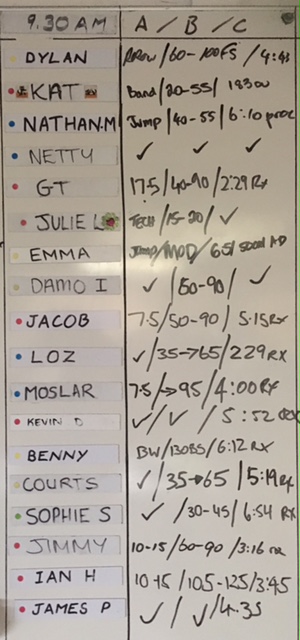 9.30 AM A / B / C
DYLAN /60-100FS / 4:43
KAT Band/20-55/
NATHAN.M Jump/40-55/6:10
NETTY ✓ ✓ ✓
GT 17.5/40-90/2:29 Rx
JULIE L TECH/15-20/ ✓
EMMA /MOD/
DAMO I ✓ /60-90/ ✓
JACOB 7.5/50-90/5:15Rx
LOZ ✓/35→65/229 RX
MOSLAR 7.5/→95/4:00 Rx
KEVIN D ✓/✓/5:52
BENNY BW/130BS/6:12 RX
COURTS ✓/35→65/5:19 Rx
SOPHIE S ✓/30-45/6:54 Rx
JIMMY 10-15/60-90/3:16
IAN H /105-125/3:45
JAMES P ✓/✓/4.35